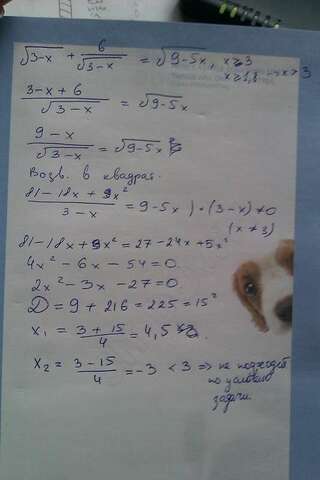 √3-x + 6/√3-x = √9-5x, x≥3
x≥1,8 => x>3
3-x+6/√3-x = √9-5x
9-x/√3-x = √9-5x
Возв. в квадрат.
81-18x+9x²/3-x = 9-5x | · (3-x)≠0
(x≠3)
81-18x+9x² = 27-24x+5x²
4x²-6x-54=0
2x²-3x-27=0
D=9+216=225=15²
x₁ = 3+15/4 = 4,5
x₂ = 3-15/4 = -3 < 3 => не подходит
по условию
задачи.